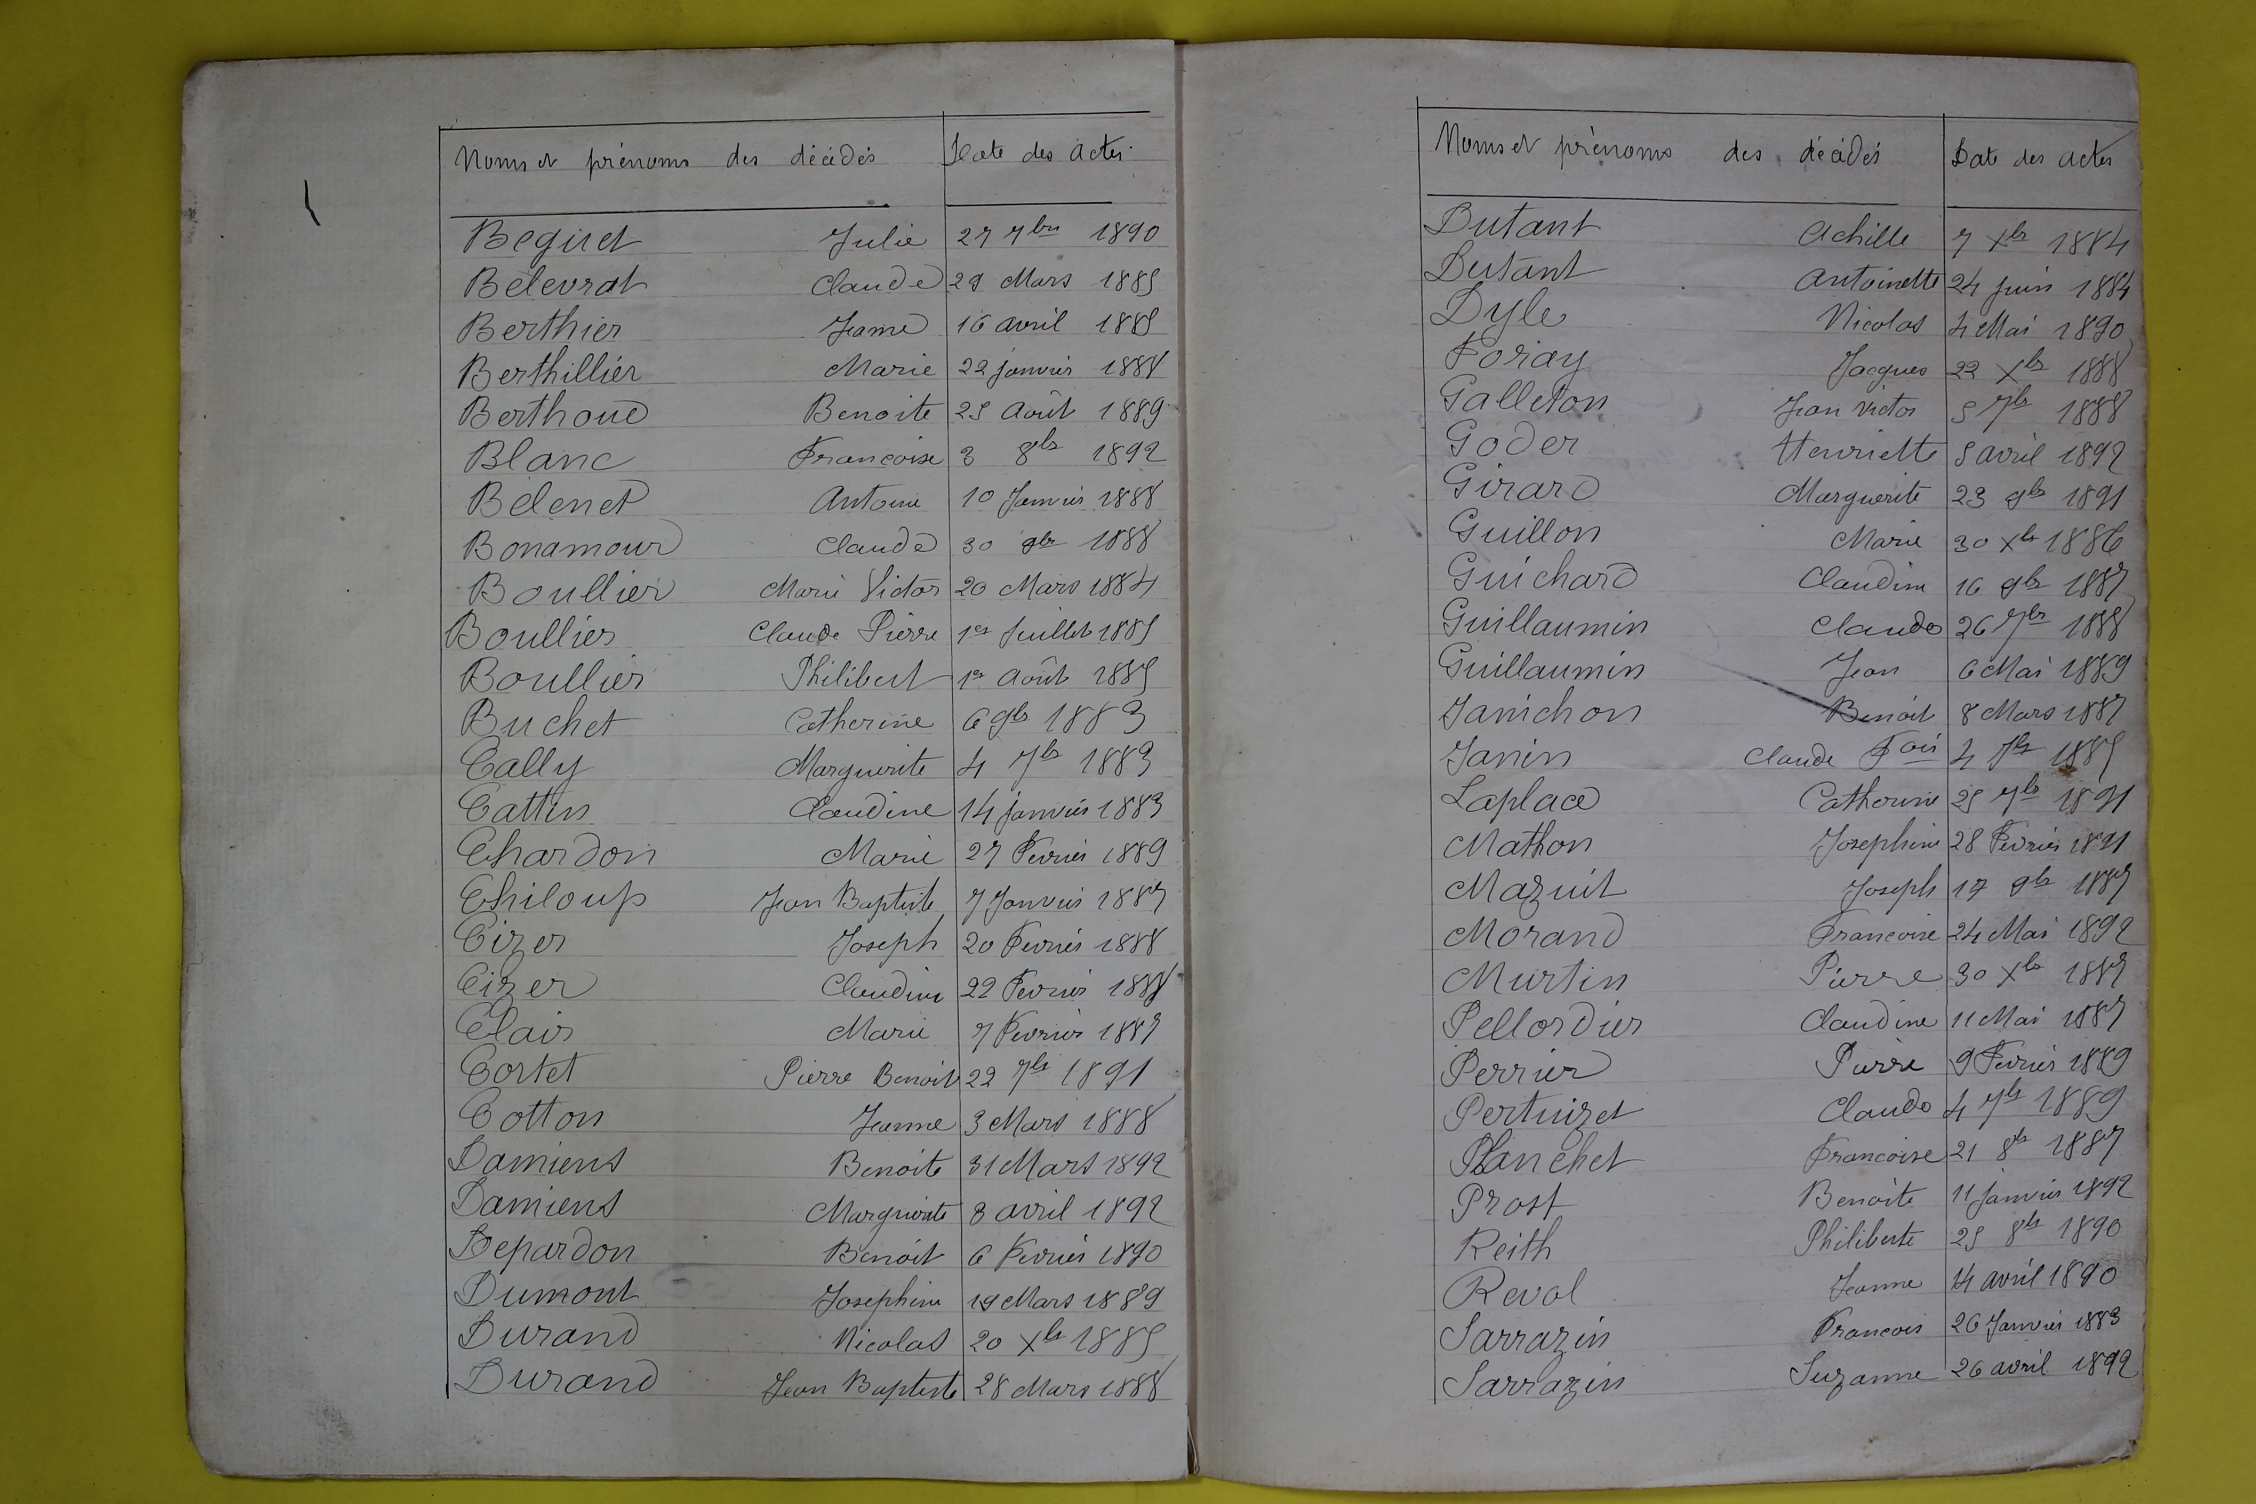 Noms et prénoms des décédés Date des actes
Beguet Julie 27 7bre 1890
Bélevrat Claude 29 Mars 1885
Berthier Jeanne 16 avril 1885
Berthillier Marie 22 janvier 1888
Berthoud Benoite 25 Août 1889
Blanc Françoise 3 8bre 1892
Bélenet Antoine 10 Janvier 1888
Bonamour Claude 30 9bre 1888
Boullier Marie Victor 20 Mars 1884
Boullier Claude Pierre 1er Juillet 1885
Boullier Philibert 1er Août 1885
Buchet Catherine 6 9bre 1883
Cally Marguerite 4 7bre 1883
Cattin Claudine 14 janvier 1883
Chardon Marie 27 Fevrier 1889
Chiloup Jean Baptiste 7 Janvier 1887
Cizer Joseph 20 Fevrier 1888
Cizer Claudine 22 Fevrier 1888
Clair Marie 7 Fevrier 1887
Cortet Pierre Benoit 22 7bre 1891
Cotton Jeanne 3 Mars 1888
Damiens Benoite 31 Mars 1892
Damiens Marguerite 3 avril 1892
Depardon Benoit 6 Fevrier 1890
Dumont Josephine 19 Mars 1889
Durand Nicolas 20 Xbre 1885
Durand Jean Baptiste 28 Mars 1888
Noms et prénoms des décédés Date des actes
Dutant Achille 7 Xbre 1884
Dutant Antoinette 24 juin 1884
Dyle Nicolas 4 Mai 1890
Foray Jacques 22 Xbre 1888
Galleton Jean Victor 5 7bre 1888
Goder Henriette 5 avril 1892
Girard Marguerite 23 9bre 1891
Guillon Marie 30 Xbre 1886
Guichard Claudine 16 9bre 1887
Guillaumin Claude 26 7bre 1888
Guillaumin Jean 6 Mai 1889
Janichon Benoit 8 Mars 1887
Janin Claude Fois 4 7bre 1885
Laplace Catherine 25 7bre 1891
Mathon Josephine 28 Fevrier 1891
Mazuit Joseph 17 9bre 1887
Morand Françoise 24 Mai 1892
Murtin Pierre 30 Xbre 1887
Pellordier Claudine 11 Mai 1887
Perrier Pierre 9 Fevrier 1889
Pertuizet Claude 4 7bre 1889
Planchet Françoise 21 8bre 1887
Prost Benoite 11 janvier 1892
Reith Philiberte 25 8bre 1890
Revol Jeanne 14 avril 1890
Sarrazin François 26 Janvier 1883
Sarrazin Suzanne 26 avril 1892